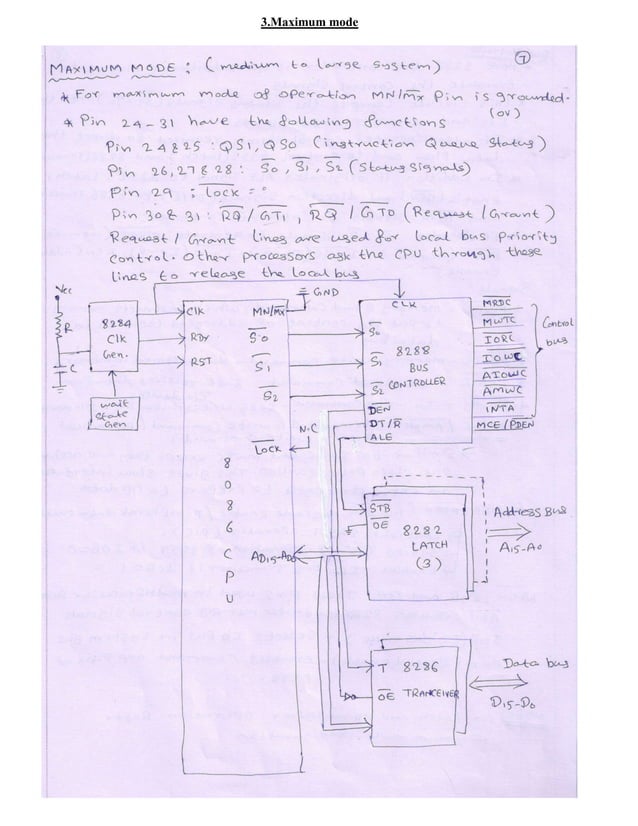 3.Maximum mode
7
MAXIMUM MODE : (medium to large system)
* For maximum mode of operation MN/M̅x̅ Pin is grounded.
(0V)
* Pin 24-31 have the following functions
Pin 24&25 : QS1, QS0 (instruction Queue Status)
Pin 26,27 & 28 : S̅0̅, S̅1̅, S̅2̅ (Status Signals)
Pin 29 : L̅o̅c̅k̅
Pin 30 & 31 : R̅Q̅ / G̅T̅1̅ , R̅Q̅ / G̅T̅0̅ (Request / Grant)
Request / Grant lines are used for local bus priority
control. Other processors ask the CPU through these
lines to release the local bus
Vcc
GND
R
C
8284
Clk
Gen.
wait
state
Gen
Clk
RDY
RST
MN/M̅x̅
S̅0̅
S̅1̅
S̅2̅
L̅o̅c̅k̅
N.C
8
0
8
6
C
P
U
AD15-AD0
CLK
S̅0̅
S̅1̅
S̅2̅
8288
BUS
CONTROLLER
DEN
DT/R̅
ALE
M̅R̅D̅C̅
M̅W̅T̅C̅
I̅O̅R̅C̅
I̅O̅W̅C̅
A̅I̅O̅W̅C̅
A̅M̅W̅C̅
I̅N̅T̅A̅
MCE/P̅D̅E̅N̅
Control
bus
S̅T̅B̅
O̅E̅
8282
LATCH
(3)
Address Bus
A15-A0
T
8286
O̅E̅ TRANCEIVER
Data bus
D15-D0